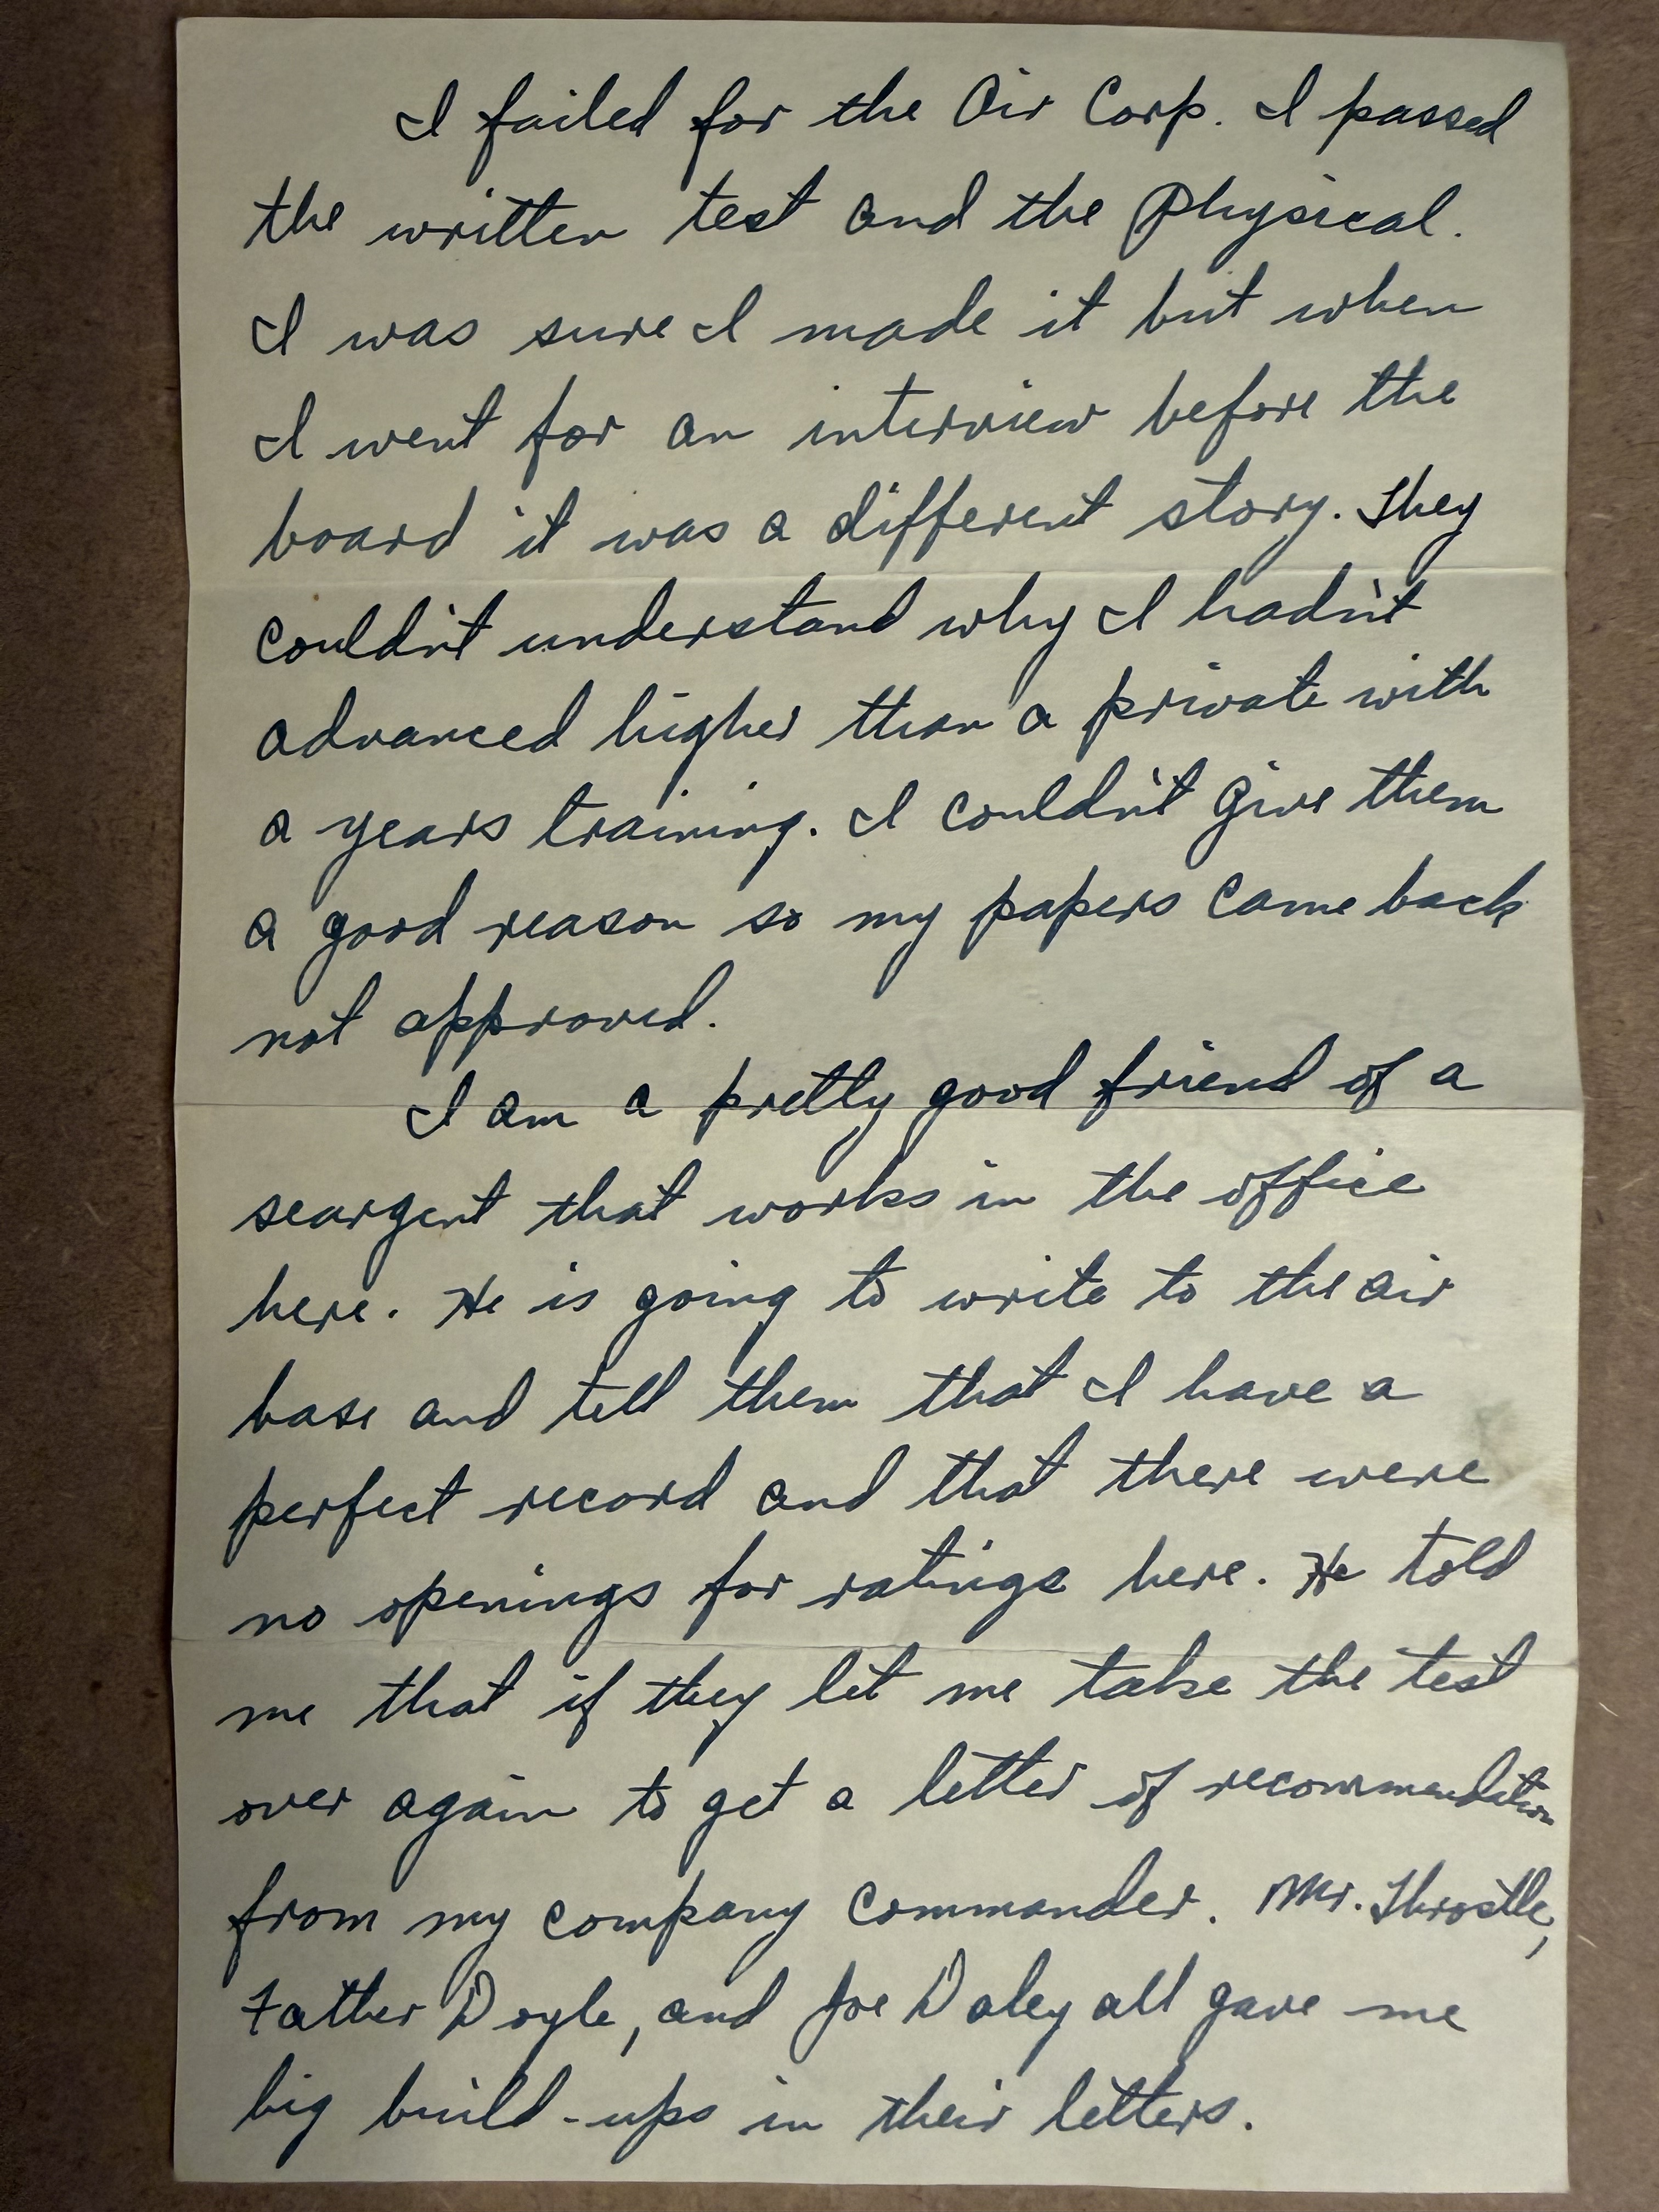 I failed for the Air Corp. I passed
the written test and the Physical.
I was sure I made it but when
I went for an interview before the
board it was a different story. They
couldn't understand why I hadn't
advanced higher than a private with
a years training. I couldn't give them
a good reason so my papers came back
not approved.
I am a pretty good friend of a
seargent that works in the office
here. He is going to write to the air
base and tell them that I have a
perfect record and that there were
no openings for ratings here. He told
me that if they let me take the test
over again to get a letter of recommendation
from my company commander. Mr. Throstle,
Father Doyle, and Joe Daley all gave me
big build-ups in their letters.